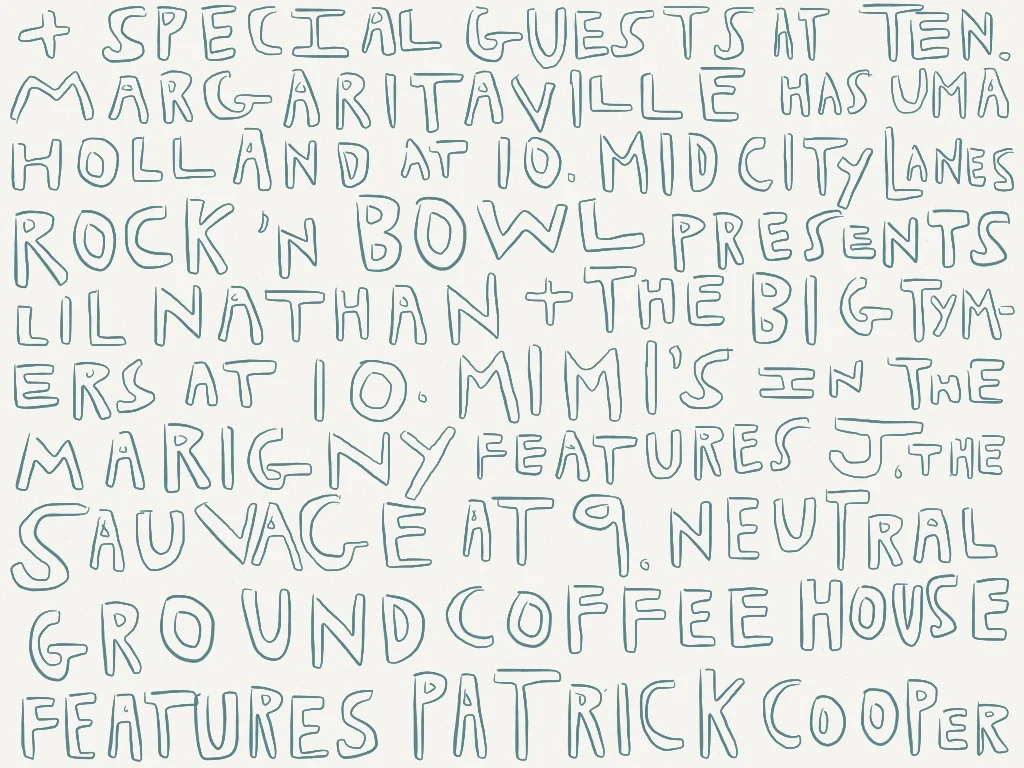 + SPECIAL GUESTS AT TEN.
MARGARITAVILLE HAS UMA
HOLLAND AT 10. MID CITY LANES
ROCK 'N BOWL PRESENTS
LIL NATHAN + THE BIG TYM-
ERS AT 10. MIMI'S IN THE
MARIGNY FEATURES J. THE
SAUVAGE AT 9. NEUTRAL
GROUND COFFEE HOUSE
FEATURES PATRICK COOPER